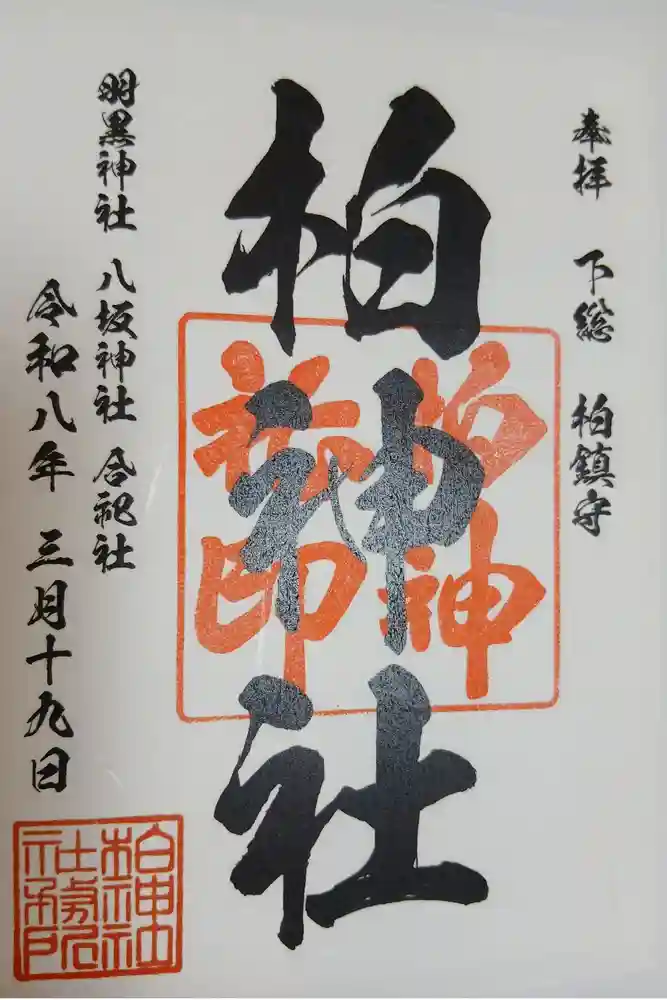 奉拝 下総 柏鎮守
柏神社
羽黒神社 八坂神社 合祀社
令和八年 三月十九日
柏神
社印
柏神社
社務所